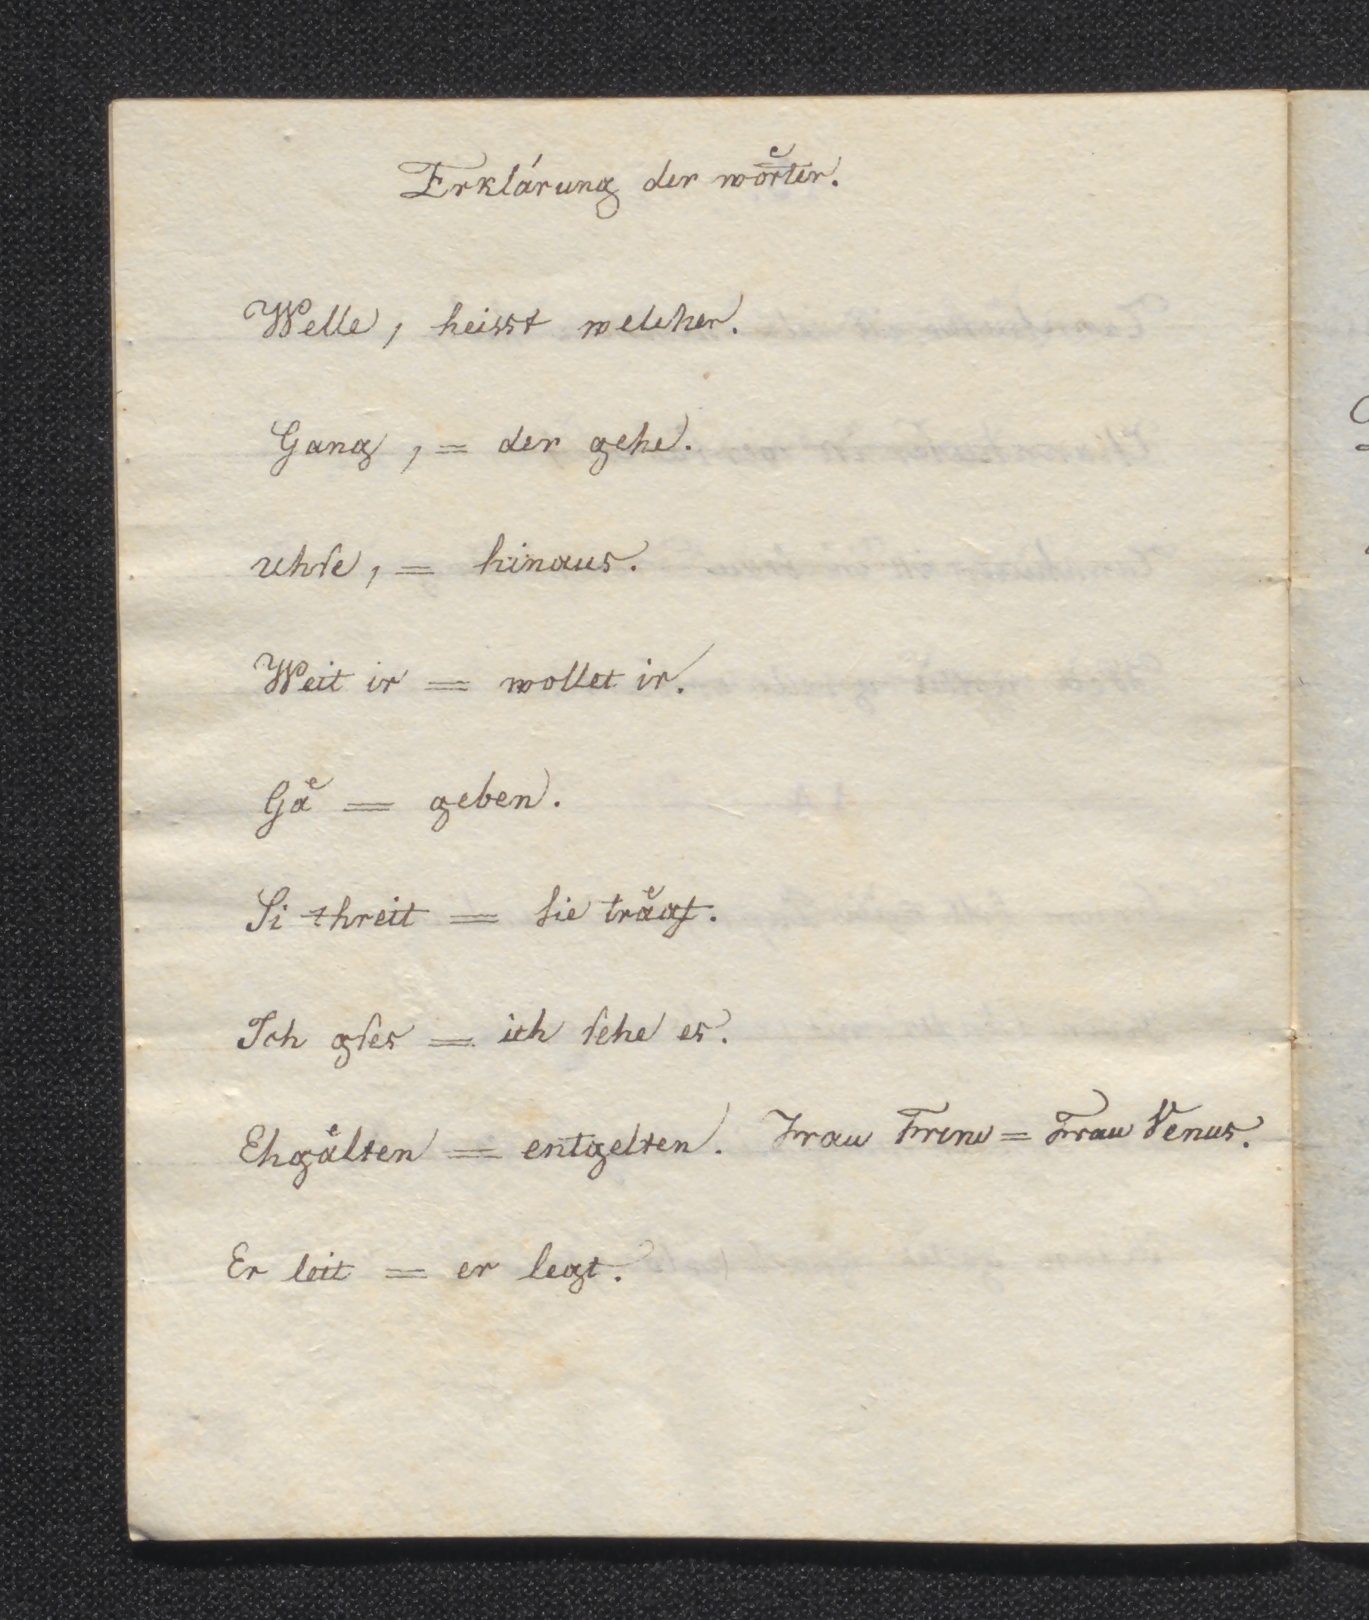 Erklárung der woͤrter.
Welle, heisst welcher.
Gang, = der gehe.
uhſe, = hinaus.
Weit ir = wollet ir.
Gaͤ = geben.
Si threit = ſie traͤgt.
Ich gſes = ich ſehe es.
Ehgaͤlten = entgelten. Frau = Frau Venus.
Er leit = er legt.